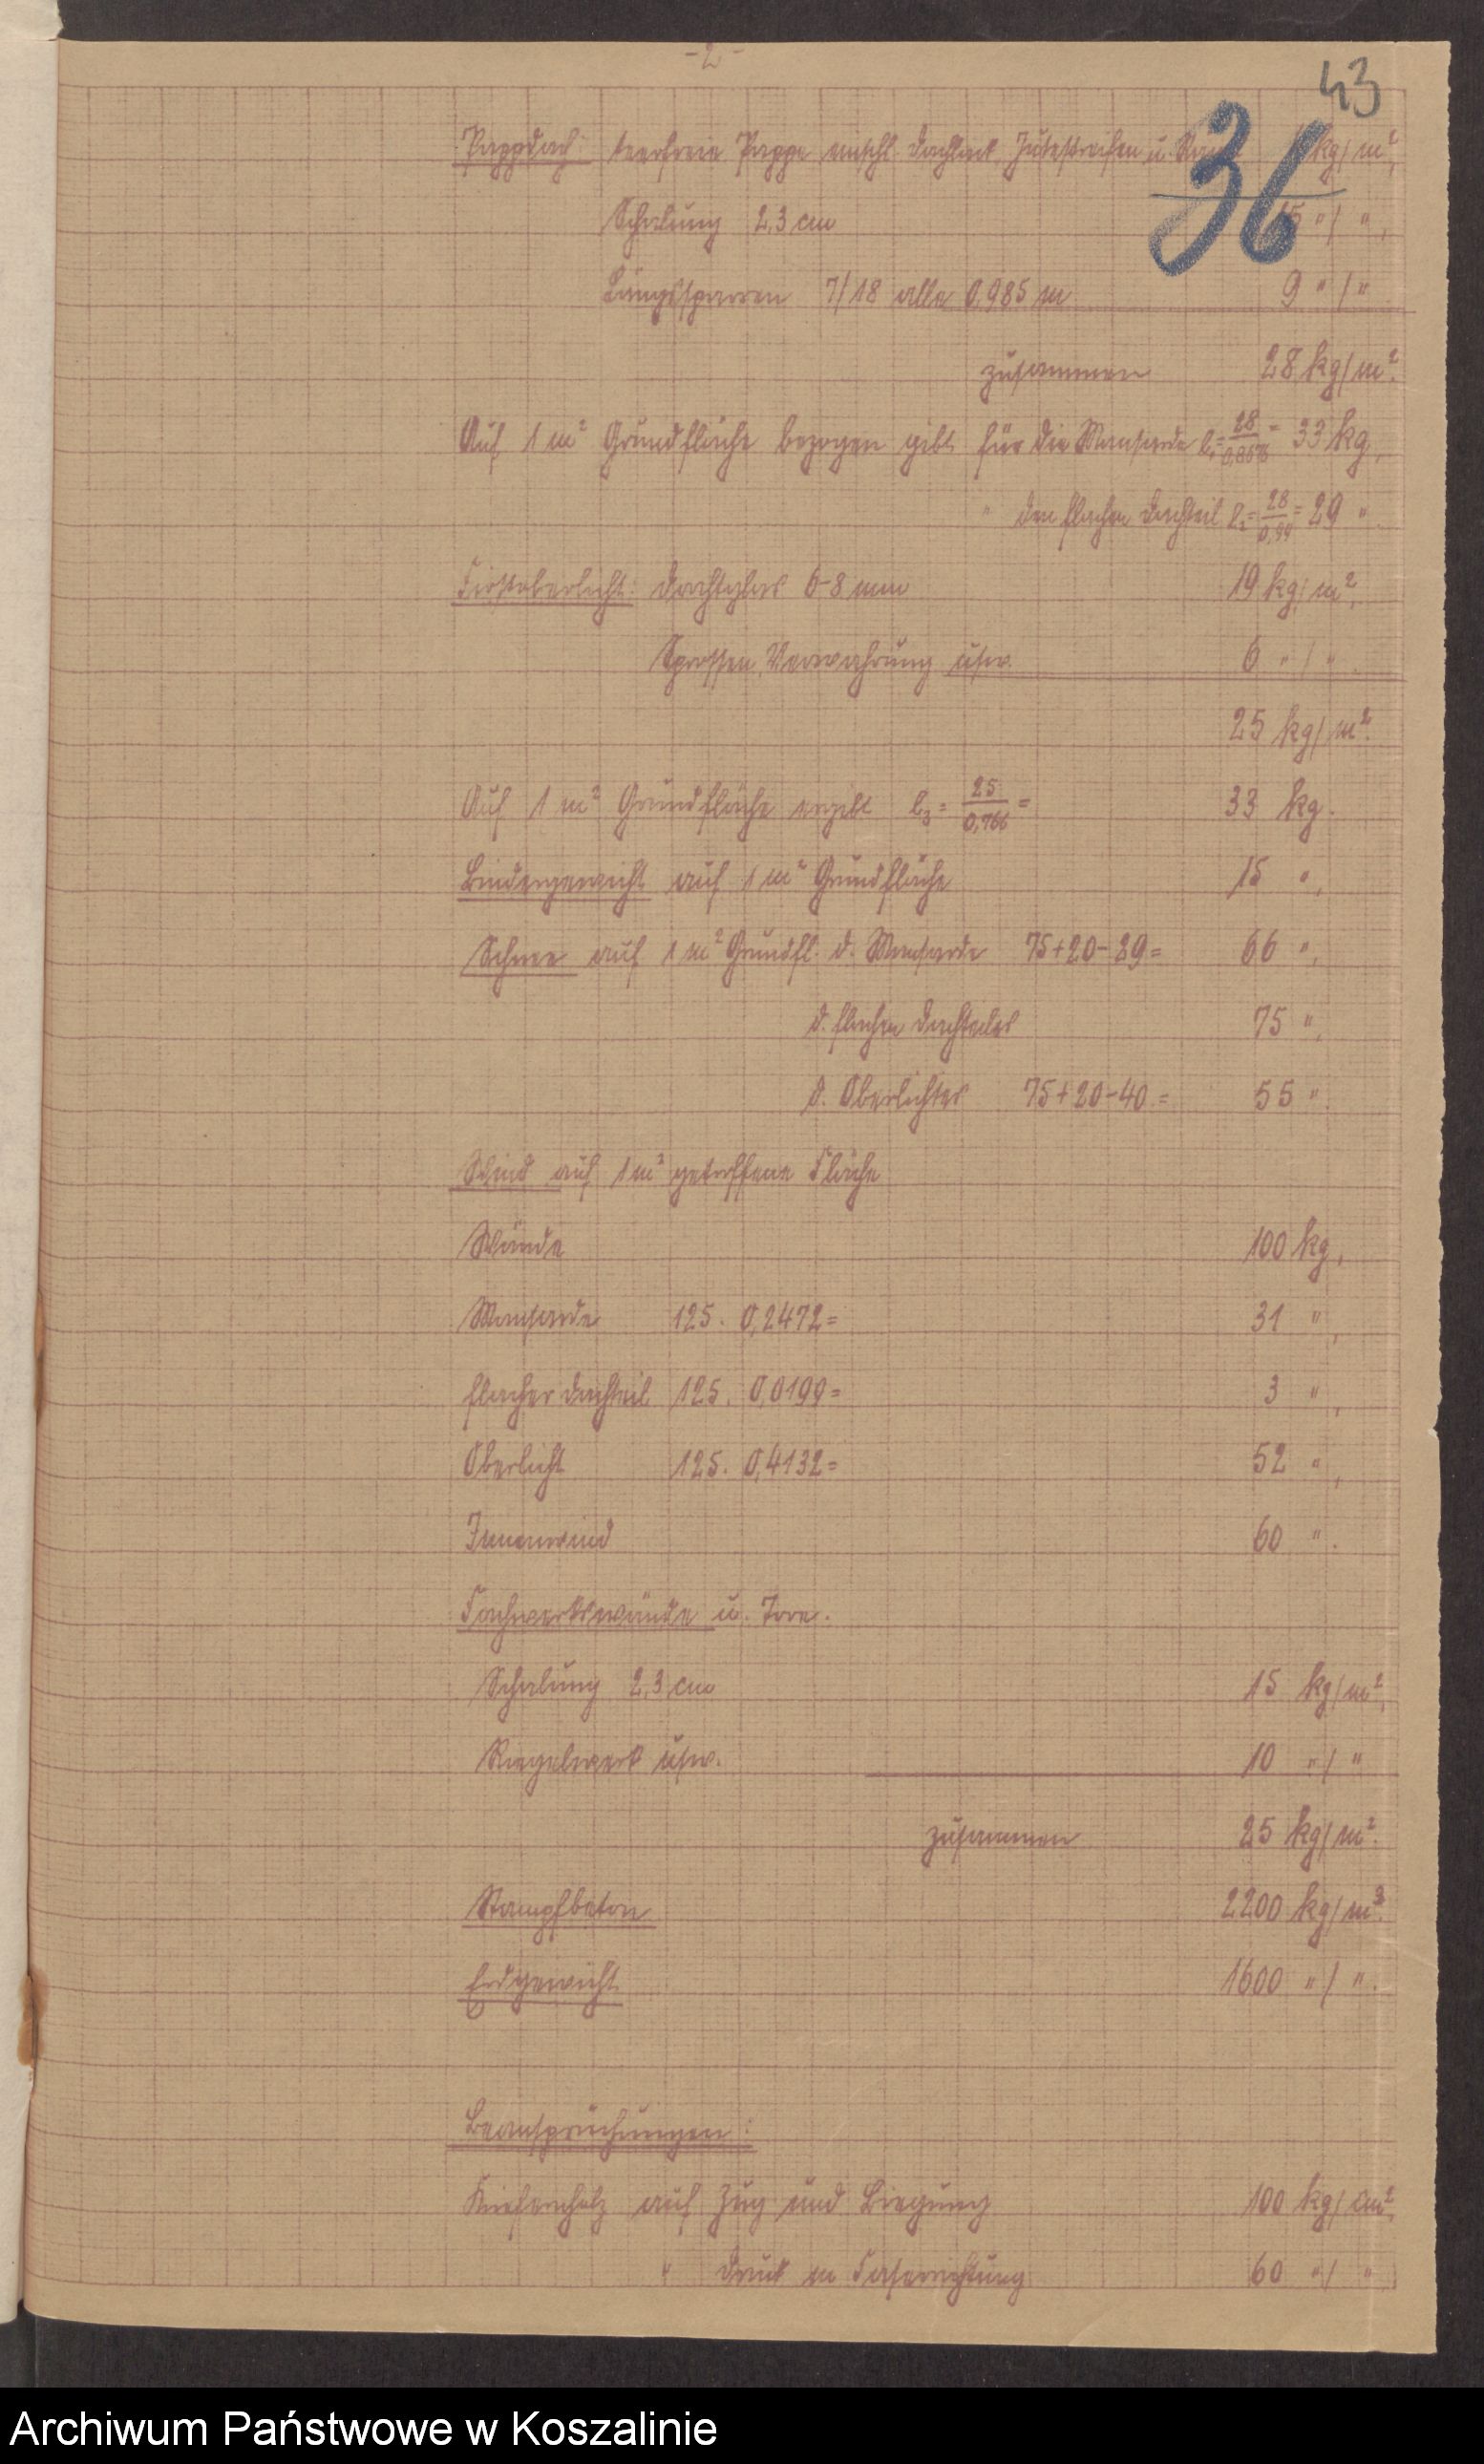 - 2 -
43
36
Pappdach: teerfreie Pappe einschl. Dachlack Jutestreifen u. kg/m²,
Schalung 2,3 cm 15 " / ",
Längssparren 7/18 alle 0,985 m 9 " / "
zusammen 28 kg/m².
Auf 1 m² Grundfläche bezogen gibt für die Mansarde l₁ = 28/0,8676 = 33 kg,
" den flachen Dachteil l₂ = 28/0,99 = 29 ".
Firstoberlicht: Drahtglas 6-8 mm 19 kg/m²,
Sprossen, Verwahrung usw. 6 " / ".
25 kg/m².
Auf 1 m² Grundfläche ergibt l₃ = 25/0,766 = 33 kg.
Bindergewicht auf 1 m² Grundfläche 15 ",
Schnee auf 1 m² Grundfl. d. Mansarde 75+20-29= 66 ",
d. flachen Dachteiles 75 ",
d. Oberlichtes 75+20-40.= 55 ".
Wind auf 1 m² getroffene Fläche
Wände 100 kg,
Mansarde 125. 0,2472= 31 ",
flacher Dachteil 125. 0,0199= 3 ",
Oberlicht 125. 0,4132= 52 ",
Innenwind 60 ".
Fachwerkswände u. Tore.
Schalung 2,3 cm 15 kg/m²,
Riegelwerk usw. 10 " / "
zusammen 25 kg/m².
Stampfbeton 2200 kg/m³.
Erdgewicht 1600 " / ".
Beanspruchungen:
Kiefernholz auf Zug und Biegung 100 kg/cm²,
" Druck in Faserrichtung 60 " / "